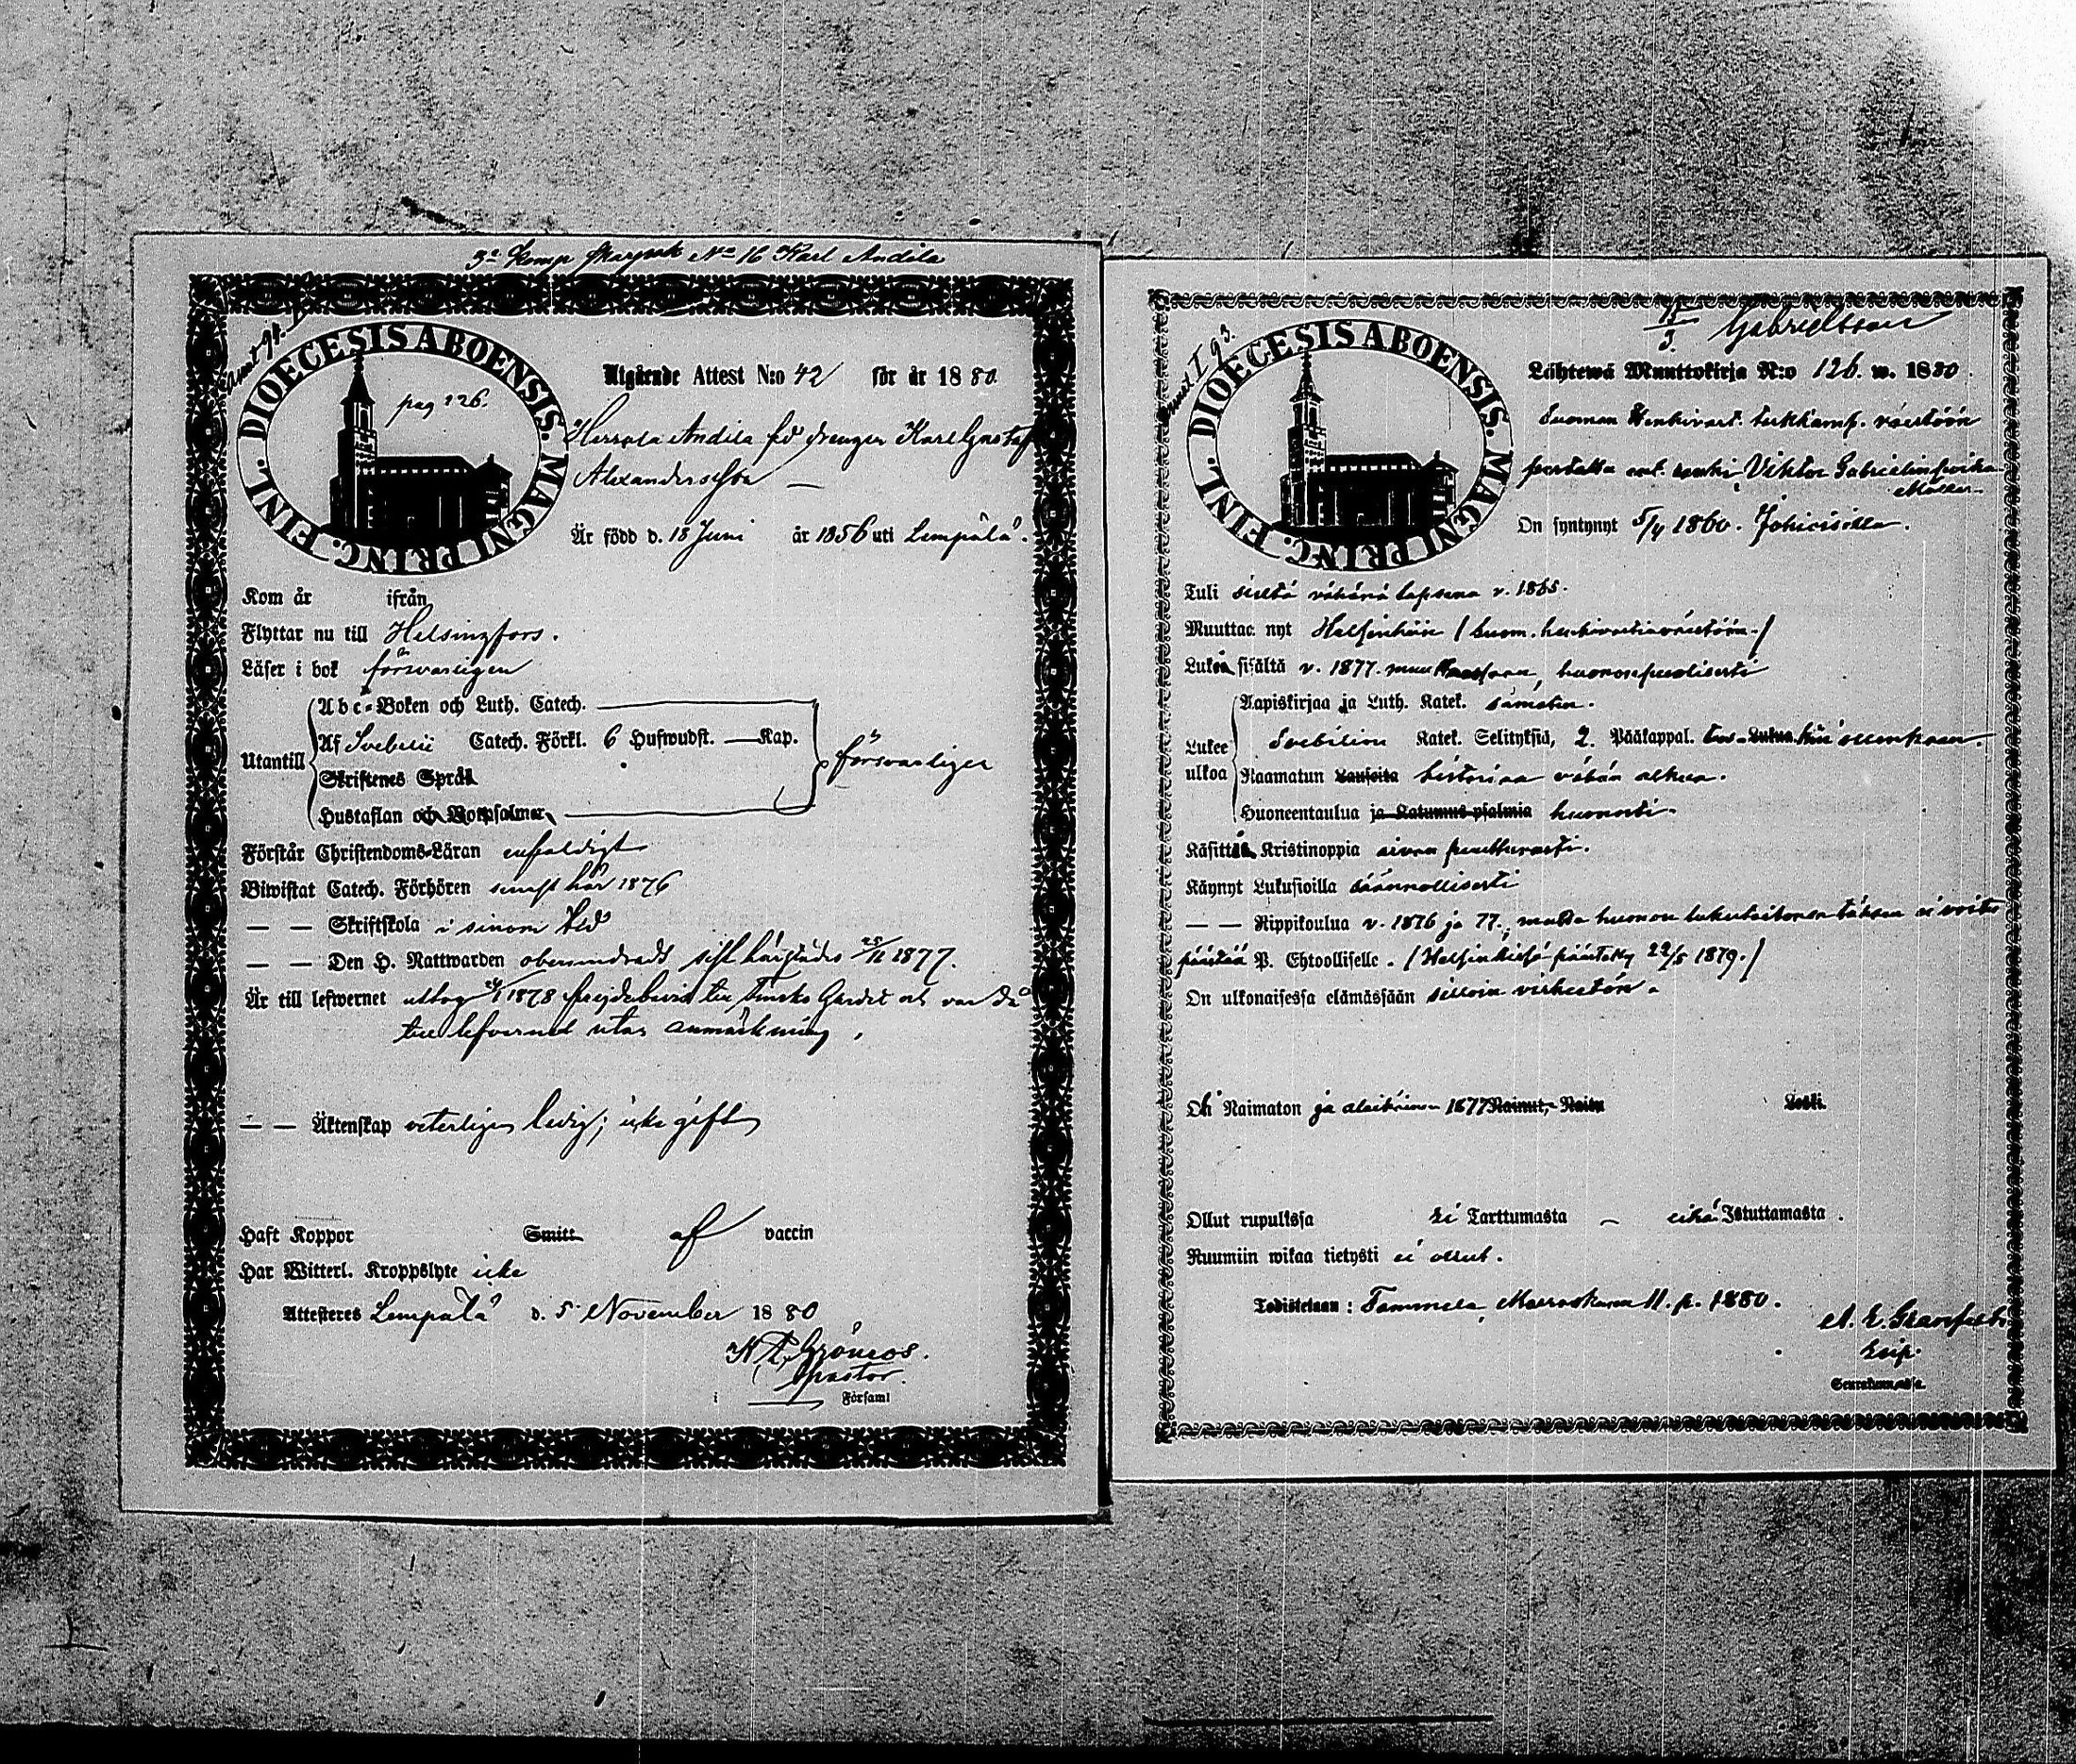 3e Komp skarpsk No 16 Karl Andila
DIOECESIS ABOENSIS. MAGNI PRINC. FINL.
pag 126.
Utgående Attest N:o 42 för år 1880.
Herrala Andila fd drengen Karl Gustaf
Alexandersson —
Är född d. 18 Juni år 1856 uti Lempälä.
Kom år ifrån
Flyttar nu till Helsingfors.
Läser i bok försvarligen
Utantill
Abc-Boken och Luth. Catech.
Af Svebelii Catech. Förkl. 6 Hufwudst. — Kap.
Skriftenes Språk
Hustaflan och Botpsalmer
försvarligen
Förstår Christendoms-Läran enfaldigt
Biwistat Catech. Förhören sennst här 1876
— — Skriftskola i sinom tid
— — Den H. Nattwarden sist härstädes 25/11 1877.
Är till lefwernet uttog 1878 frejdebevis till Finska Gardet och var då
till lefvernet utan anmärkning.
— — Äktenskap veterligen ledig; icke gift
Haft Koppor Smitt af vaccin
Har Witterl. Kroppslyte icke
Attesteres Lempälä d. 5 November 1880
Pastor.
i Församl
75/3. Gabrielsson
DIOECESIS ABOENSIS. MAGNI PRINC. FINL.
Lähtewä Muuttokirja N:o 126. w. 1880.
Suomen Henkivart. tarkkamp. väestöön
Viktor Gabrielinpoika
On syntynyt 5/4 1860. Jokioisilla.
Tuli sieltä vähänä lapsena v. 1865.
Muuttaa nyt Helsinkiin / Suom. henkivartiaväestöön. /
Lukea sisältä v. 1877. huononpuolisesti
Lukee ulkoa
Aapiskirjaa ja Luth. Katek. samaten.
Svebilion Katek. Selityksiä, 2. Pääkappal.
Raamatun Lauseita historiaa vähän alkua.
Huoneentaulua ja Katumus-psalmia huonosti.
Käsittää Kristinoppia aivan puutteensti.
Käynyt Lukusioilla säännöllisesti
— — Rippikoulua v. 1876 ja 77., mutta huonon lukutaitonsa tähden ei voitu
päästää P. Ehtoolliselle. / Helsingissä päästetty 22/5 1879. /
On ulkonaisessa elämässään silloin virheetön.
Oli Naimaton ja alaikäinen 1877 Nainut,- Naitu Leski.
Ollut rupulissa ei Tarttumasta — eikä Istuttamasta.
Ruumiin wikaa tietysti ei ollut.
Todistetaan: Tammela, Marraskuun 11. p. 1880.
Seurakunnassa.